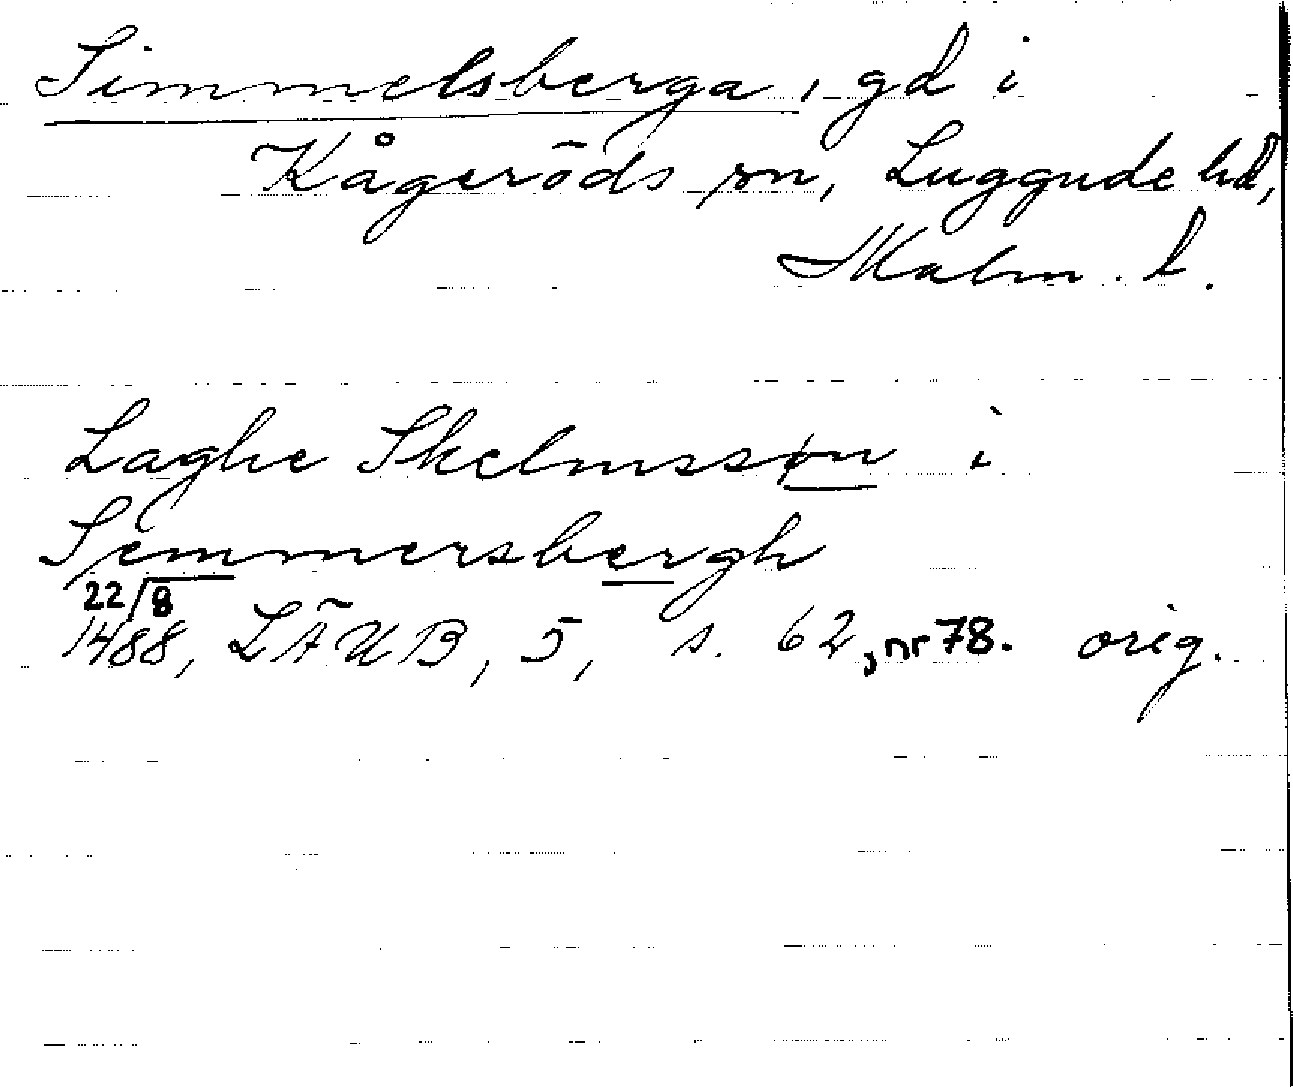 Simmelsberga, gd i
Kågeröds sn, Luggude hd,
Malm. l.
Laghe Skelmssøn i
Semmersbergh
22/8
1488, LÄUB, 5, s. 62, nr 78. orig.